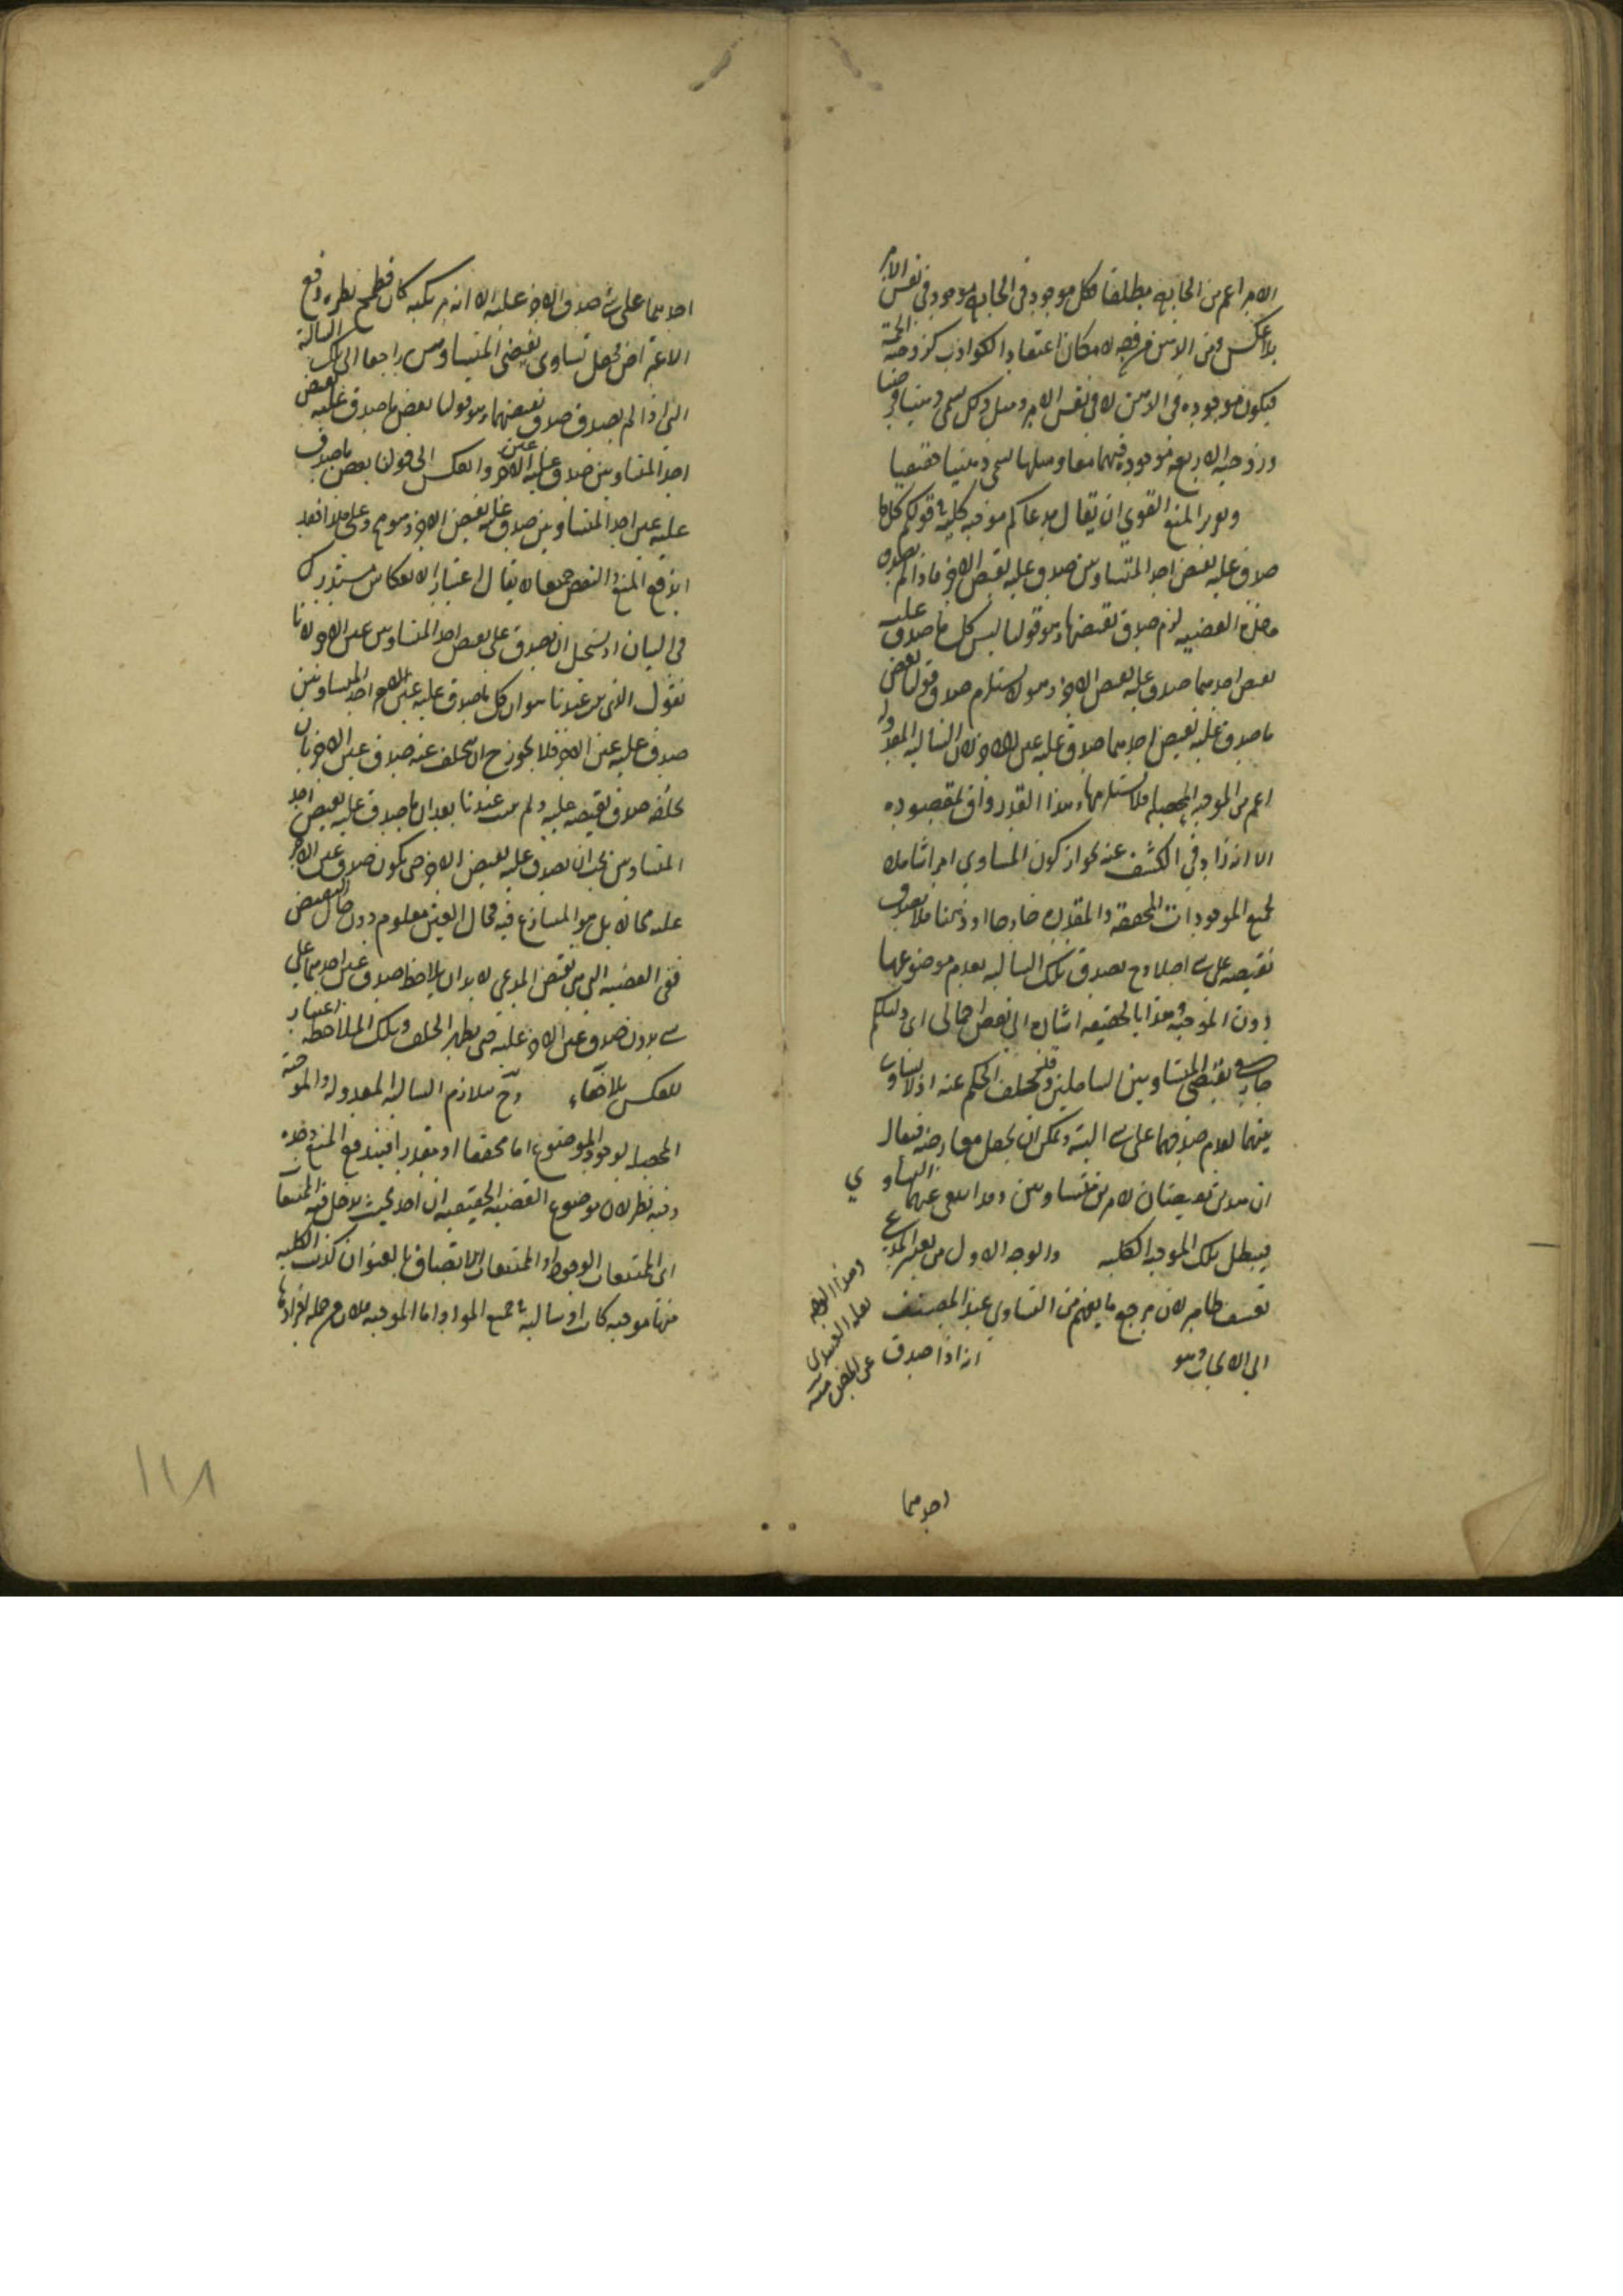 الامر اعم من الخارج مطلقا فكل موجود فى الخارج موجود فى نفس الامر
بلا عكس ومن الذهن من وجه لامكان اعتقاد الكواذب كزوجية الخمسة
فيكون موجوده فى الذهن لا فى نفس الامر ومثل ذلك يسمى ذهنيا فرضيا
وزوجية الاربعة موجودة فيهما معا ومثلها يسمى ذهنيا حقيقيا
المنع القوى ان يقال مدعاكم موجبة كلية قولكم كل ما
صدق عليه نقيض احد المتساويين صدق عليه نقيض الاخر فاذا لم يصدق
هذه القضية لزم صدق نقيضها وهو قولنا ليس كل ما صدق عليه
نقيض احدهما صدق عليه نقيض الاخر وهو لا يستلزم صدق قولنا بعض
ما صدق عليه نقيض احدهما صدق عليه عين الاخر لان السالبة المعدولة
اعم من الموجبة المحصلة فلا يستلزمها وهذا القدر واف بمقصوده
الا انه زاد فى الكشف عنه بجواز كون المساوى امرا شاملا
لجميع الموجودات المحققة والمقدرة خارجا او ذهنا فلا يصدق
نقيضه على شئ اصلا وح يصدق تلك السالبة بعدم موضوعها
دون الموجبة وهذا بالحقيقة اشارة الى نقض اجمالى اى دليلكم
جار فى نقيضى المتساويين الشاملين وقد تخلف الحكم عنه اذ لا تساوى
بينهما لعدم صدقهما على شئ البتة ويمكن ان يجعل معارضة فيقال
ان هذين نقيضان لامرين متساويين وقد انتفى عنهما التساوى
فيبطل تلك الموجبة الكلية والوجه الاول من تغيير المدعى
تعسف ظاهر لان مرجع ما يفهم من التساوى عند المصنف
الى الايجاب وهو انه اذا صدق
وهذا الوجه
عن بعض منه
احدهما
احدهما على شئ صدق الاخر عليه الا انه ارتكبه كان مطمح نظره دفع
الاعتراض فجعل تساوى نقيضى المتساويين راجعا الى تلك السالبة
التى اذا لم يصدق صدق نقيضهما وهو قولنا بعض ما صدق عليه نقيض
احد المتساويين صدق عليه عين الاخر وانعكس الى قولنا بعض ما صدق
عليه عين احد المتساويين صدق عليه نقيض الاخر وهو مح وعلى هذا فقد
اندفع المنع والنقض جميعا لا يقال اعتبار الانعكاس مستدرك
فى البيان اذ يستحيل ان يصدق على نقيض احد المتساويين عين الاخر لانا
نقول الذى ثبت عندنا هو ان كل ما صدق عليه عين احد المتساويين
صدق عليه عين الاخر فلا يجوز ح ان يتخلف عنه صدق عين الاخر بان
يخلفه صدق نقيضه عليه ولم يثبت عندنا بعد ان ما صدق عليه نقيض احد
المتساويين يجب ان يصدق عليه نقيض الاخر حتى يكون صدق عين الاخر
عليه محالا بل هو المتنازع فيه فحال العين معلوم دون حال النقيض
ففى القضية التى هى نقيض المدعى لا بد ان يلاحظ صدق عين احدهما على
شئ بدون صدق عين الاخر عليه حتى يظهر الخلف وتلك الملاحظة اعتبار
للعكس بلا خفاء وح تلازم السالبة المعدولة والموجبة
المحصلة لوجود الموضوع اما محققا او مقدرا فيندفع المنع وفيه
وفيه نظر لان موضوع القضية الحقيقية ان اخذ بحيث يدخل فيه الممتنعات
اى الممتنعات الوجود او الممتنعات الاتصاف بالعنوان كذبت الكلية
منها موجبة كانت او سالبة فى جميع المواد اما الموجبة فلان من جملة افرادها
١١٨